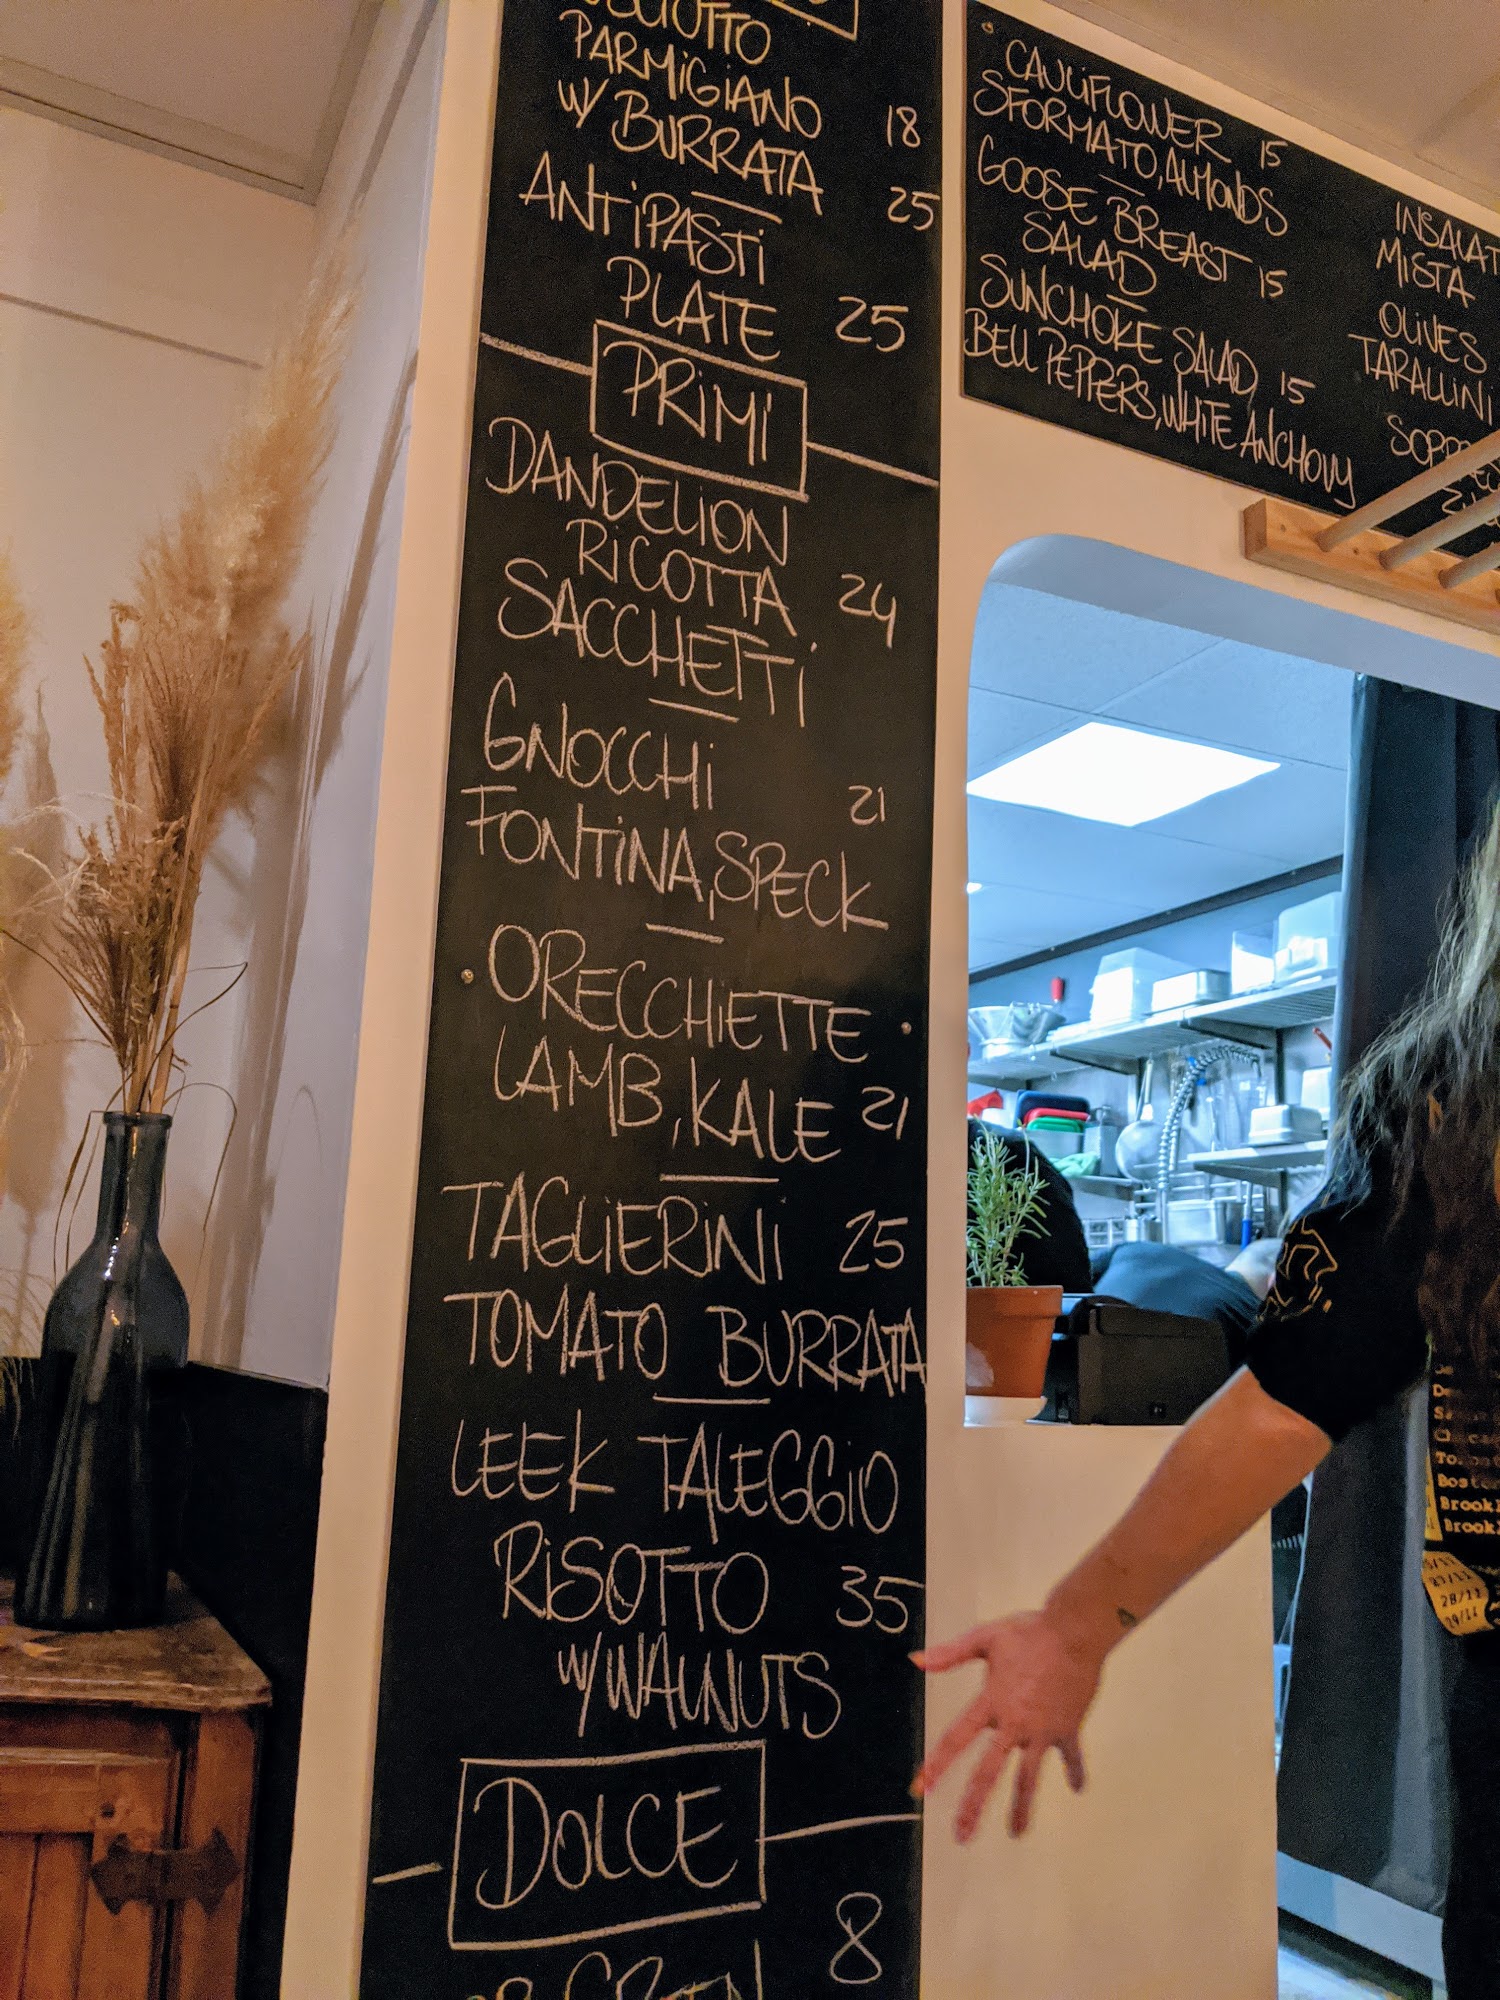 PARMIGIANO 18
W/ BURRATA
25
ANTIPASTI
PLATE 25
PRIMI
DANDELION
RICOTTA 24
SACCHETTI
GNOCCHI 21
FONTINA, SPECK
ORECCHIETTE
LAMB, KALE 21
TAGLIERINI 25
TOMATO BURRATA
LEEK TALEGGIO
RISOTTO 35
W/ WALNUTS
DOLCE
8
CAULIFLOWER 15
SFORMATO, ALMONDS
GOOSE BREAST 15
SALAD
SUNCHOKE SALAD 15
BELL PEPPERS, WHITE ANCHOVY
INSALAT
MISTA
OLIVES
TARALLINI
Bost
Brook
Brook
27/11
28/11
29/11